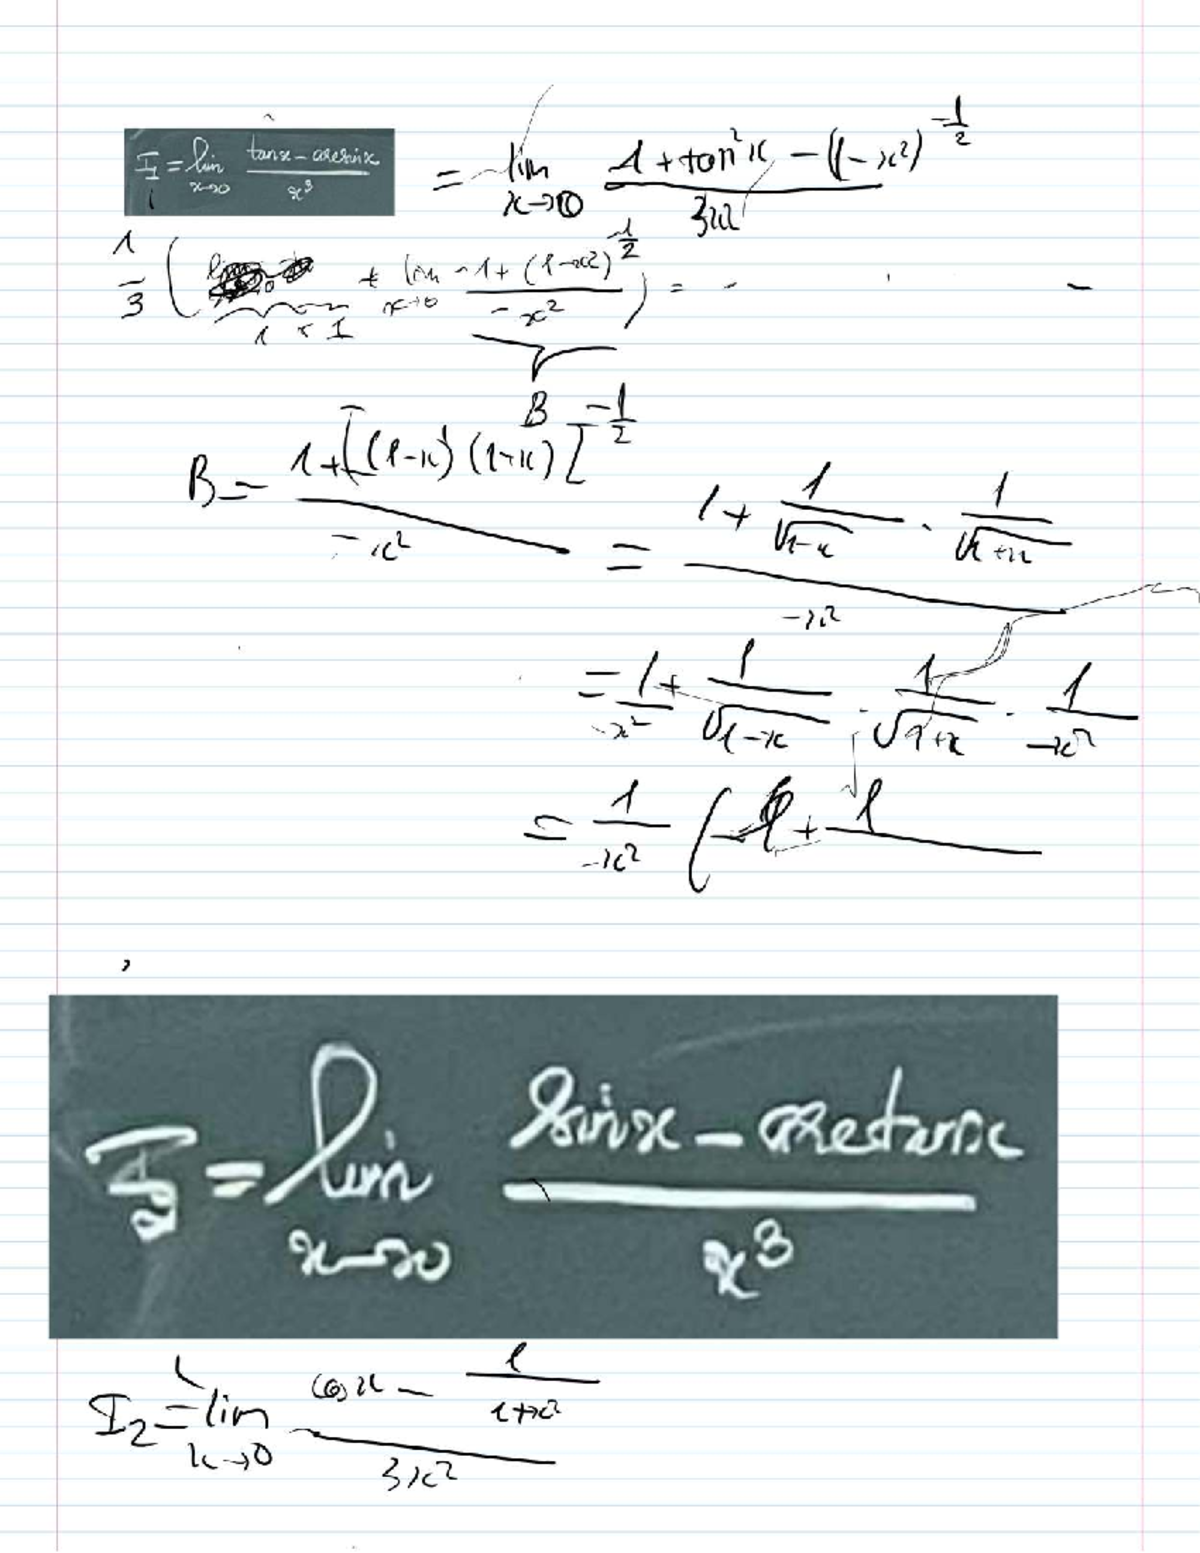 I₁ = lim x→0 (tanx − arcsinx)/x³ = lim x→0 (1 + tan²x − (1−x²)^(−1/2))/3x²
1/3 ( + lim x→0 (−1 + (1−x²)^(−1/2))/(−x²) ) = - -
1 × 1
B
B = (1 + [(1−x)(1+x)]^(−1/2))/(−x²) = (1 + 1/√(1−x) · 1/√(1+x))/(−x²)
= 1/(−x²) + 1/√(1−x) · 1/√(1+x) · 1/(−x²)
= 1/(−x²) ( 1 + 1
I₂ = lim x→0 (sinx − arctanx)/x³
I₂ = lim x→0 (cosx − 1/(1+x²))/3x²